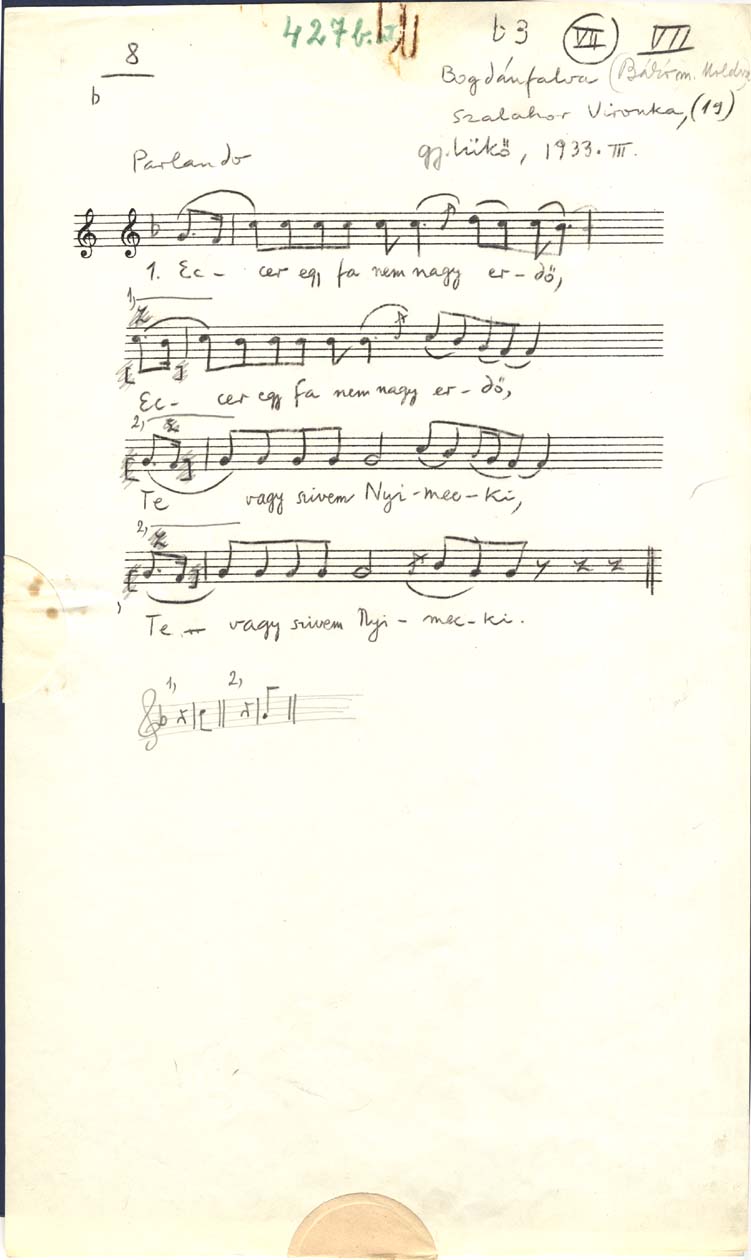 8
b
427b.
b3 VII VII
Bogdánfalva (Bákó m. Moldva
Szalahor Vironka, (19)
gj. Lükő, 1933. III.
Parlando
1. Ec - cer egy fa nem nagy er - dő,
1,
Ec - cer egy fa nem nagy er - dő,
2,
Te vagy szivem Nyi - mec - ki,
2,
Te vagy szivem Nyi - mec - ki.
1, 2,